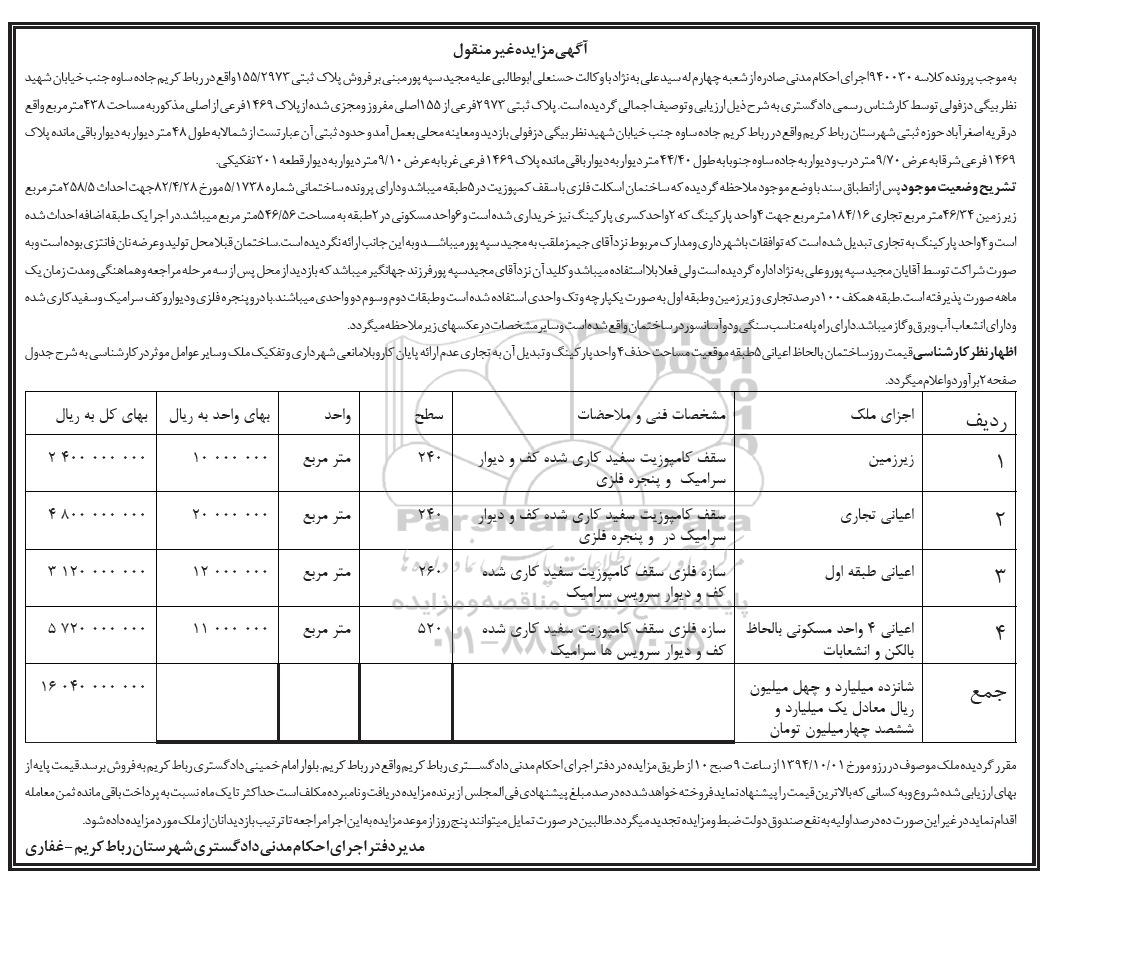 آگهی مزایده غیر منقول
به موجب پرونده کلاسه ۹۴۰۰۳۰اجرای احکام مدنی صادره از شعبه چهارم له سید علی به نژاد با وکالت حسنعلی ابوطالبی علیه مجید سپه پور مبنی بر فروش پلاک ثبتی ۱۵۵/۲۹۷۳واقع در رباط کریم جاده ساوه جنب خیابان شهید
نظر بیگی دزفولی توسط کارشناس رسمی دادگستری به شرح ذیل ارزیابی و توصیف اجمالی گردیده است. پلاک ثبتی ۲۹۷۳فرعی از ۱۵۵اصلی مفروز و مجزی شده از پلاک ۱۴۶۹فرعی از اصلی مذکور به مساحت ۴۳۸متر مربع واقع
در قریه اصغر آباد حوزه ثبتی شهرستان رباط کریم واقع در رباط کریم جاده ساوه جنب خیابان شهید نظر بیگی دزفولی بازدید و معاینه محلی بعمل آمد و حدود ثبتی آن عبارتست از شمالا به طول ۴۸متر دیوار به دیوار باقی مانده پلاک
۱۴۶۹فرعی شرقا به عرض ۹/۷۰متر درب و دیوار به جاده ساوه جنوبا به طول ۴۴/۴۰متر دیوار به دیوار باقی مانده پلاک ۱۴۶۹فرعی غربا به عرض ۹/۱۰متر دیوار به دیوار قطعه ۲۰۱تفکیکی.
تشریح وضعیت موجود پس از انطباق سند با وضع موجود ملاحظه گردیده که ساختمان اسکلت فلزی با سقف کمپوزیت در ۵طبقه میباشد و دارای پرونده ساختمانی شماره ۵/۱۷۳۸مورخ ۸۲/۴/۲۸جهت احداث ۲۵۸/۵متر مربع
زیر زمین ۴۶/۳۴متر مربع تجاری ۱۸۴/۱۶متر مربع جهت ۴واحد پارکینگ که ۲واحد کسری پارکینگ نیز خریداری شده است و ۶واحد مسکونی در ۲طبقه به مساحت ۵۴۶/۵۶متر مربع میباشد. در اجرا یک طبقه اضافه احداث شده
است و ۴واحد پارکینگ به تجاری تبدیل شده است که توافقات با شهرداری و مدارک مربوط نزد آقای جیمز ملقب به مجید سپه پور میباشد و به این جانب ارائه نگردیده است. ساختمان قبلا محل تولید و عرضه نان فانتزی بوده است و به
صورت شراکت توسط آقایان مجید سپه پور و علی به نژاد اداره گردیده است ولی فعلا بلا استفاده میباشد و کلید آن نزد آقای مجید سپه پور فرزند جهانگیر میباشد که بازدید از محل پس از سه مرحله مراجعه و هماهنگی و مدت زمان یک
ماهه صورت پذیرفته است. طبقه همکف ۱۰۰درصد تجاری و زیر زمین و طبقه اول به صورت یکپارچه و تک واحدی استفاده شده است و طبقات دوم و سوم دو واحدی میباشند. با در و پنجره فلزی و دیوار و کف سرامیک و سفید کاری شده
و دارای انشعاب آب و برق و گاز میباشد. دارای راه پله مناسب سنگی و دو آسانسور در ساختمان واقع شده است و سایر مشخصات در عکسهای زیر ملاحظه میگردد.
اظهار نظر کارشناسی قیمت روز ساختمان بالحاظ اعیانی ۵طبقه موقعیت مساحت حذف ۴واحد پارکینگ و تبدیل آن به تجاری عدم ارائه پایان کار و بلامانعی شهرداری و تفکیک ملک و سایر عوامل موثر در کارشناسی به شرح جدول
صفحه ۲بر آورد و اعلام میگردد.
ردیف اجزای ملک مشخصات فنی و ملاحضات سطح واحد بهای واحد به ریال بهای کل به ریال
۱ زیرزمین سقف کامپوزیت سفید کاری شده کف و دیوار ۲۴۰ متر مربع ۱۰ ۰۰۰ ۰۰۰ ۲ ۴۰۰ ۰۰۰ ۰۰۰
سرامیک و پنجره فلزی
۲ اعیانی تجاری سقف کامپوزیت سفید کاری شده کف و دیوار ۲۴۰ متر مربع ۲۰ ۰۰۰ ۰۰۰ ۴ ۸۰۰ ۰۰۰ ۰۰۰
سرامیک در و پنجره فلزی
۳ اعیانی طبقه اول سازه فلزی سقف کامپوزیت سفید کاری شده ۲۶۰ متر مربع ۱۲ ۰۰۰ ۰۰۰ ۳ ۱۲۰ ۰۰۰ ۰۰۰
کف و دیوار سرویس سرامیک
۴ اعیانی ۴ واحد مسکونی بالحاظ سازه فلزی سقف کامپوزیت سفید کاری شده ۵۲۰ متر مربع ۱۱ ۰۰۰ ۰۰۰ ۵ ۷۲۰ ۰۰۰ ۰۰۰
بالکن و انشعابات کف و دیوار سرویس ها سرامیک
جمع شانزده میلیارد و چهل میلیون ۱۶ ۰۴۰ ۰۰۰ ۰۰۰
ریال معادل یک میلیارد و
ششصد چهارمیلیون تومان
مقرر گردیده ملک موصوف در رزو مورخ ۱۳۹۴/۱۰/۰۱از ساعت ۹صبح ۱۰از طریق مزایده در دفتر اجرای احکام مدنی دادگستری رباط کریم واقع در رباط کریم. بلوار امام خمینی دادگستری رباط کریم به فروش برسد. قیمت پایه از
بهای ارزیابی شده شروع و به کسانی که بالاترین قیمت را پیشنهاد نماید فروخته خواهد شد ده درصد مبلغ پیشنهادی فی المجلس از برنده مزایده دریافت و نامبرده مکلف است حداکثر تا یک ماه نسبت به پرداخت باقی مانده ثمن معامله
اقدام نماید در غیر این صورت ده درصد اولیه به نفع صندوق دولت ضبط و مزایده تجدید میگردد. طالبین در صورت تمایل میتوانند پنج روز از موعد مزایده به این اجرا مراجعه تا ترتیب بازدید انان از ملک مورد مزایده داده شود.
مدیر دفتر اجرای احکام مدنی دادگستری شهرستان رباط کریم - غفاری
ParsNamadData
پایگاه اطلاع رسانی مناقصه و مزایده
۰۲۱-۸۸۳۴۹۶۷۰-۵